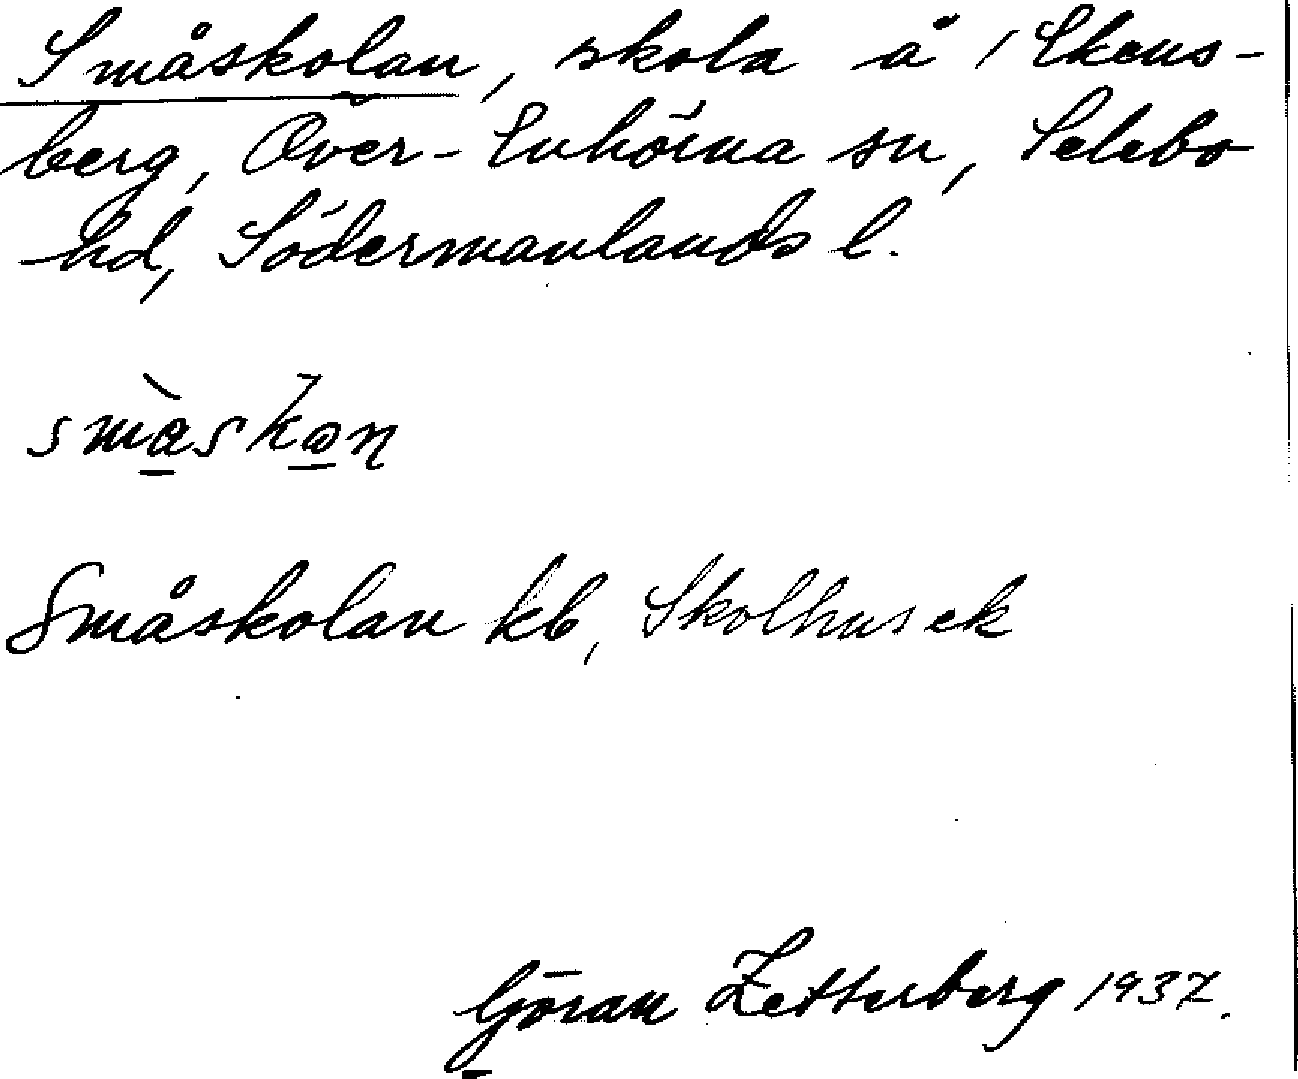 Småskolan, skola å 1 Ekens-
berg, Över-Enhörna sn, Selebo
hd, Södermanlands l.
Småskolan kb, Skolhus ek
Göran Zetterberg 1937.